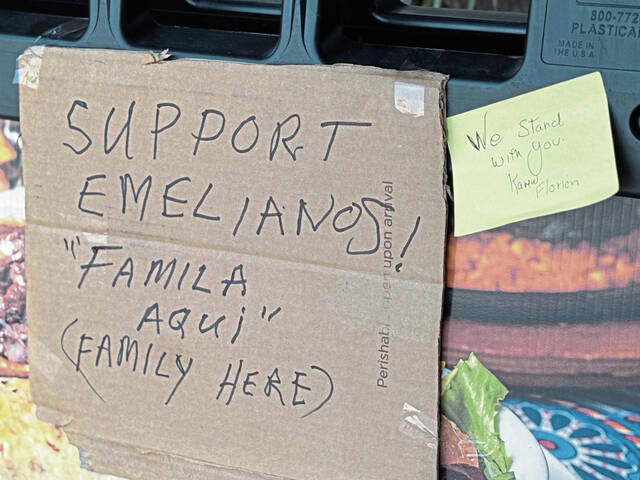 SUPPORT
EMELIANOS!
"FAMILA
AQUi"
(FAMILY HERE)
Perishabl open upon arrival
We Stand
with you.
Florien
800-772
PLASTICA
MADE IN
THE U.S.A